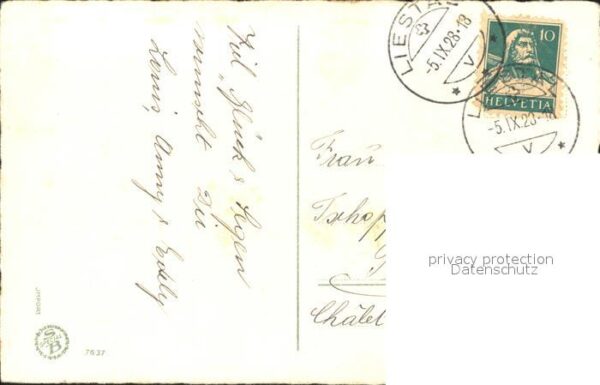 Viel Glück & Segen
wünscht Dir
Louis, Anny &
LIESTAL
-5.IX.28-18
V
10
HELVETIA
-5.IX.28-18
V
Frau
Tschopp
Châlet
privacy protection
Datenschutz
IMPORT
SB
SPECIAL
7637